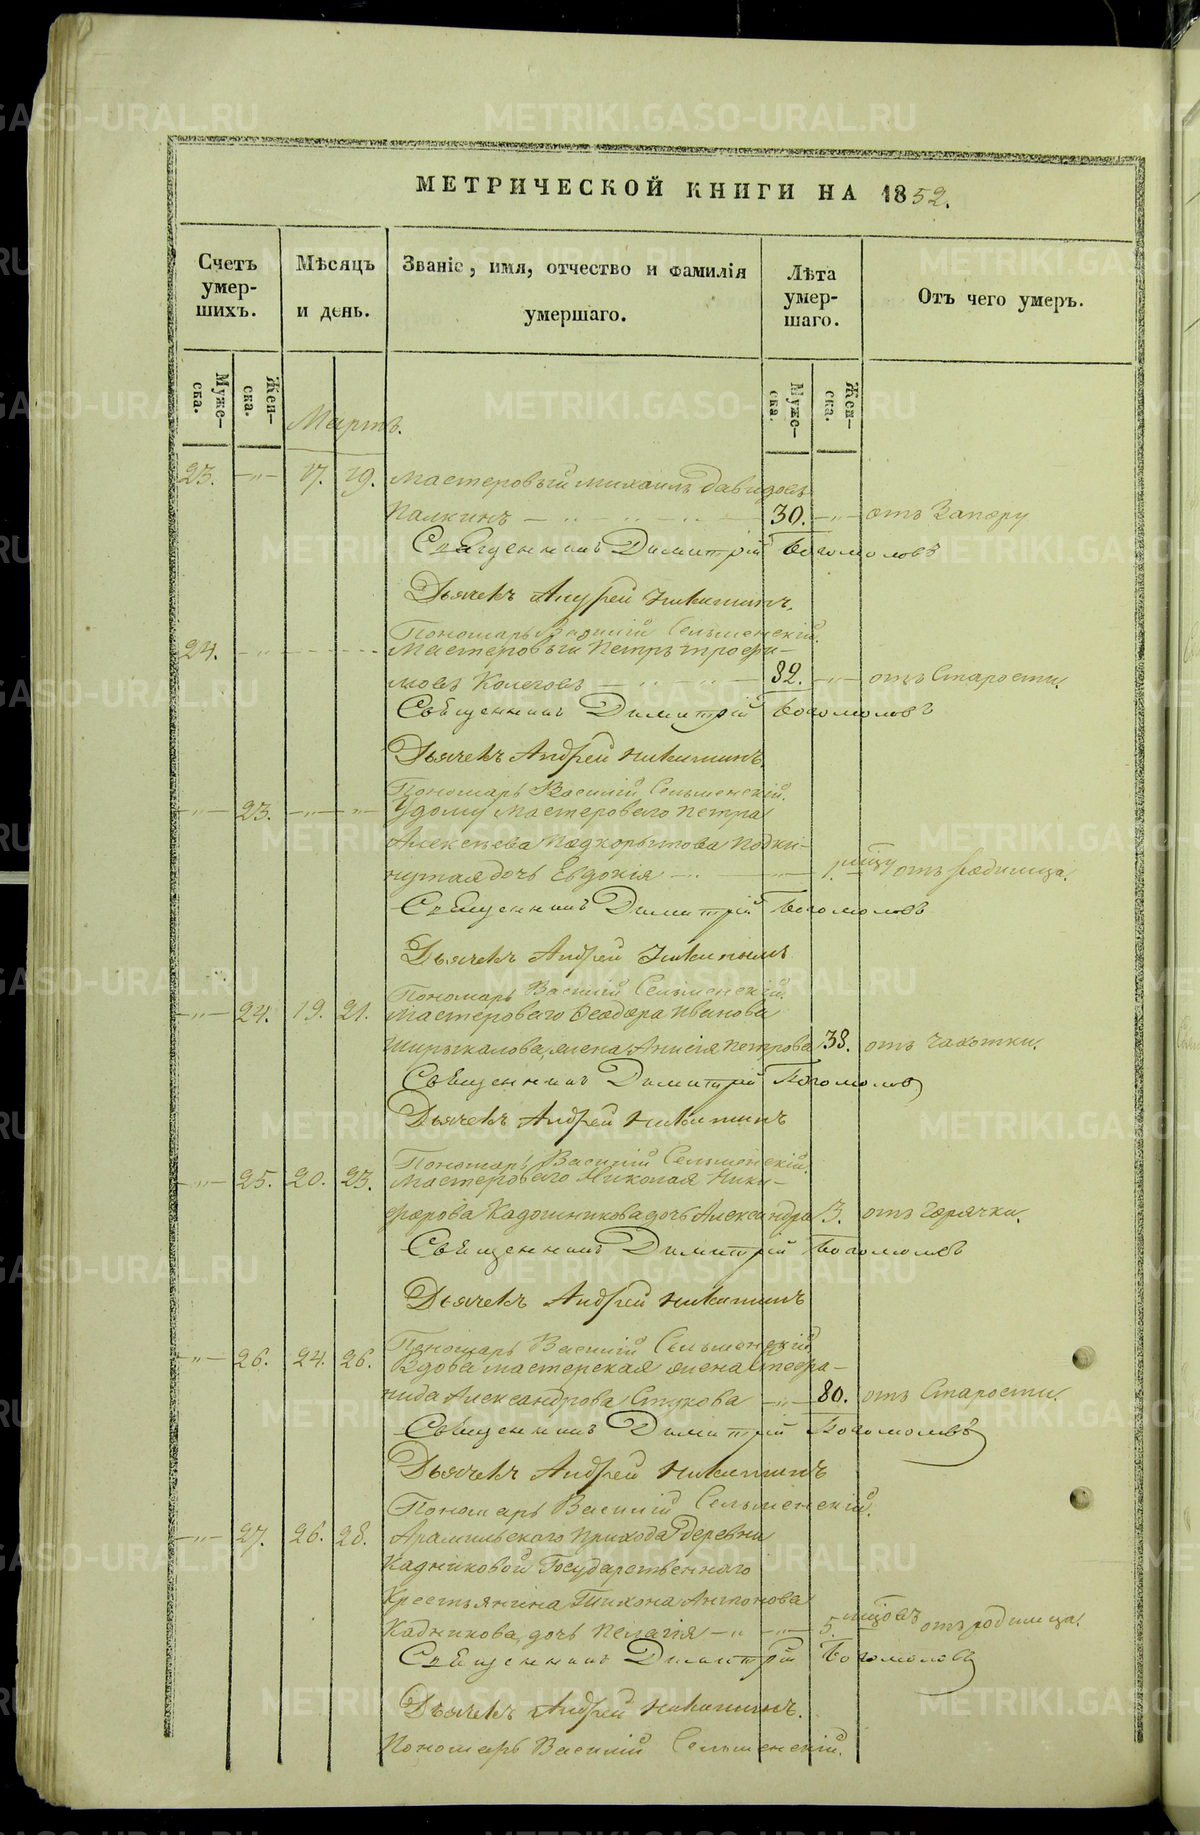 МЕТРИЧЕСКОЙ КНИГИ НА 1852.
Счетъ умер-шихъ.
Мѣсяцъ и день.
Званіе, имя, отчество и фамилія умершаго.
Лѣта умер-шаго.
Отъ чего умеръ.
Муже-ска.
Жен-ска.
Муже-ска.
Жен-ска.
Мартъ.
23. —"— 17. 19. Мастеровый Михаилъ Давидовъ
Палкинъ 30. —"— отъ Запору
Священникъ Димитрій Богомоловъ
Дьячекъ Андрей Никитинъ.
Пономарь Василій Сельменскій.
24. Мастеровый Петръ Трофи-
мовъ Колеговъ 82. —"— отъ Старости.
Священникъ Димитрій Богомоловъ
Дьячекъ Андрей Никитинъ
Пономарь Василій Сельменскій.
—"— 23. —"— —"— У дому Мастероваго Петра
Алексѣева Подкорытова подки-
нутая дочь Евдокія 1. мцу отъ родимца.
Священникъ Димитрій Богомоловъ
Дьячекъ Андрей Никитинъ
Пономарь Василій Сельменскій.
—"— 24. 19. 21. Мастероваго Ѳеодора Иванова
Ширыкалова, жена Анисія Петрова 38. отъ Чахотки.
Священникъ Димитрій Богомоловъ
Дьячекъ Андрей Никитинъ
Пономарь Василій Сельменскій.
—"— 25. 20. 23. Мастероваго Николая Ники-
форова Кадошникова дочь Александра 3. отъ Горячки.
Священникъ Димитрій Богомоловъ
Дьячекъ Андрей Никитинъ
Пономарь Василій Сельменскій
—"— 26. 24. 26. Вдова мастерская жена Стефа-
нида Александрова Стукова —"— 80. отъ Старости.
Священникъ Димитрій Богомоловъ
Дьячекъ Андрей Никитинъ
Пономарь Василій Сельменскій.
—"— 27. 26. 28. Арамильского прихода деревни
Кадниковой Государственнаго
Крестьянина Тихона Антонова
Кадникова, дочь Пелагія —"— 5. мцовъ отъ родимца.
Священникъ Димитрій Богомоловъ
Дьячекъ Андрей Никитинъ.
Пономарь Василій Сельменскій.
METRIKI.GASO-URAL.RU